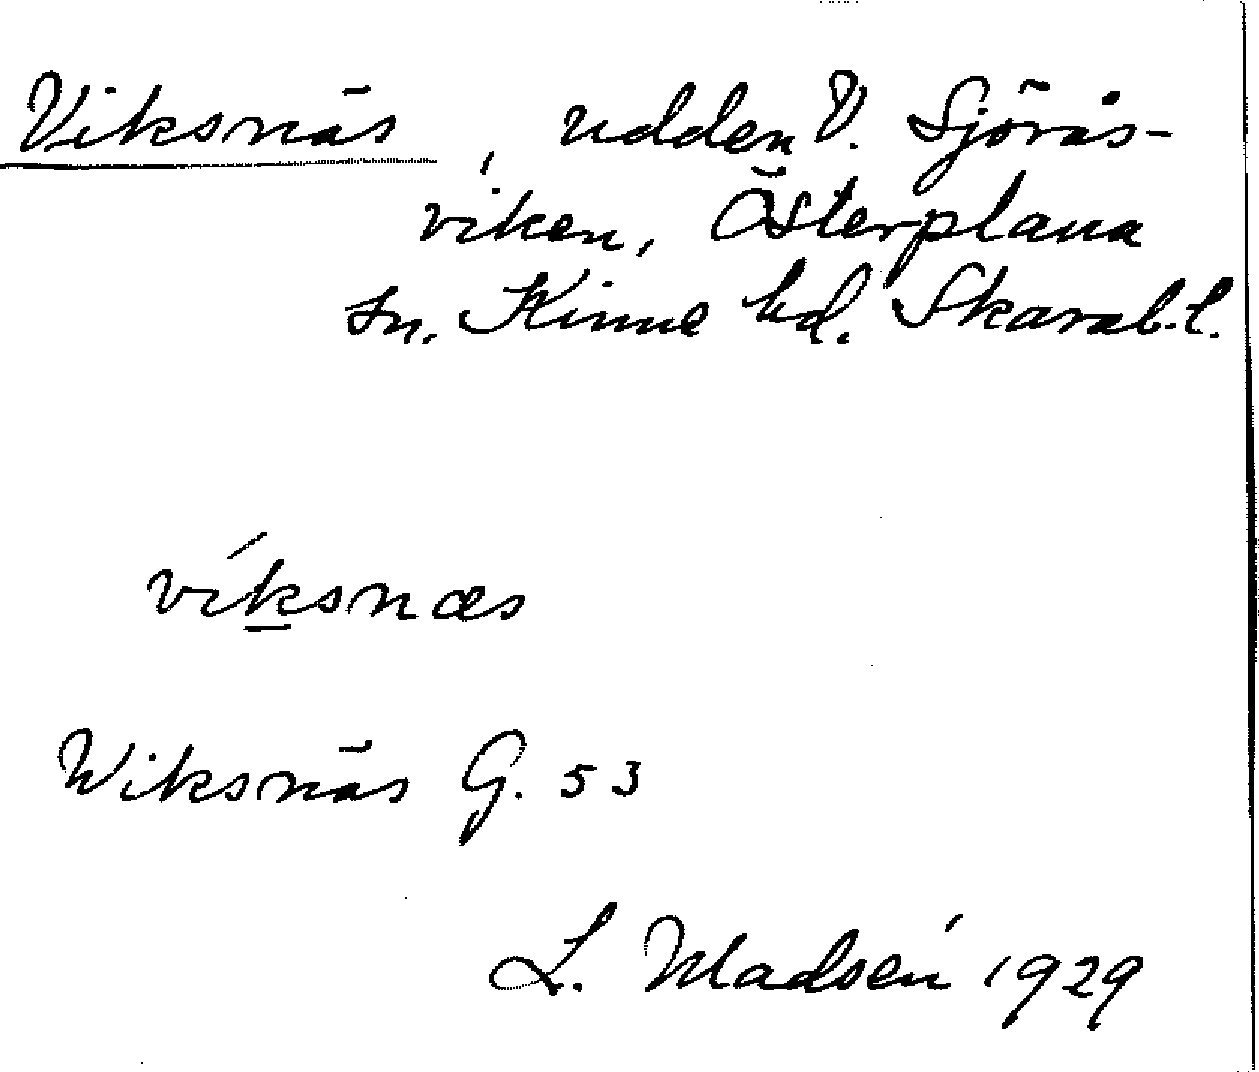 Viksnäs, udden V. Sjörås-
viken, Österplana
sn. Kinne hd. Skarab. l.
víksnæs
Wiksnäs G. 53
L. Madsén 1929